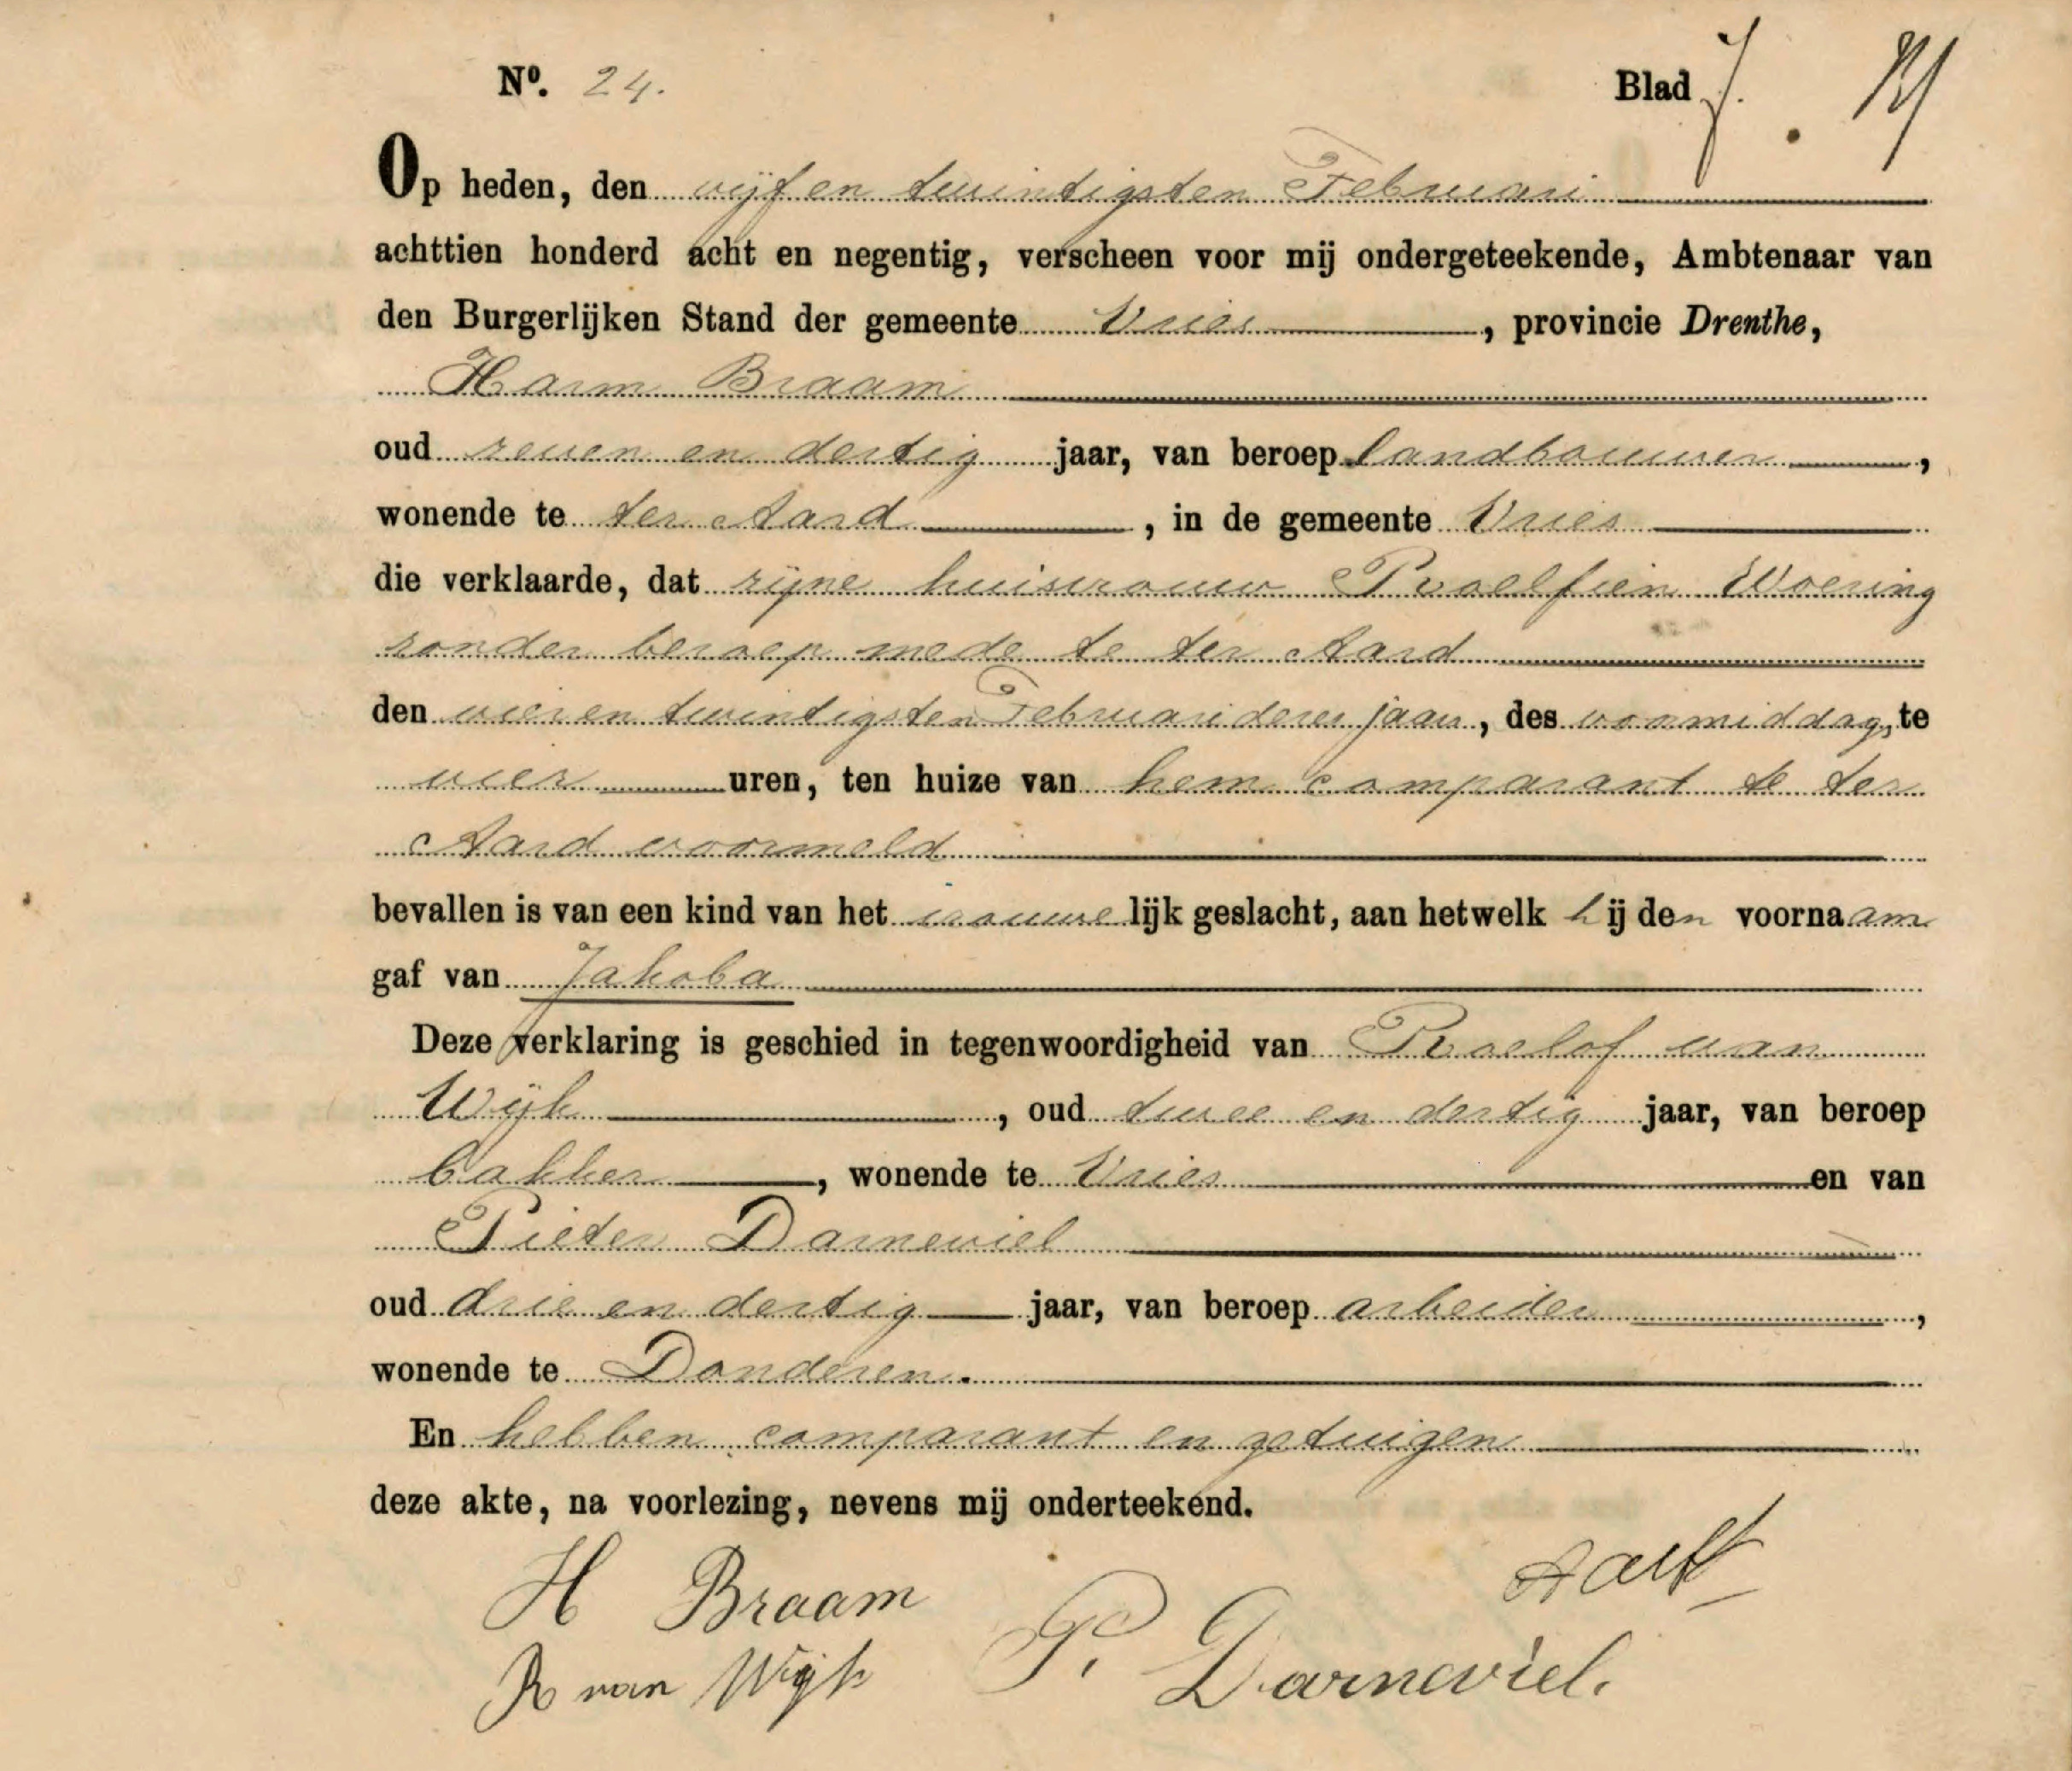 Nº. 24. Blad 7.
Op heden, den vijf en twintigsten Februari
achttien honderd acht en negentig, verscheen voor mij ondergeteekende, Ambtenaar van
den Burgerlijken Stand der gemeente Vries, provincie Drenthe,
Harm Braam
oud zeven en dertig jaar, van beroep landbouwer,
wonende te ter Aard, in de gemeente Vries
die verklaarde, dat zijne huisvrouw Roelfien Woering
zonder beroep mede te ter Aard
den vier en twintigsten Februari dezes jaars, des voormiddags, te
vier uren, ten huize van hem comparant te ter
Aard voormeld
bevallen is van een kind van het vrouwelijk geslacht, aan hetwelk hij den voornaam
gaf van Jakoba
Deze verklaring is geschied in tegenwoordigheid van Roelof van
Wijk, oud twee en dertig jaar, van beroep
bakker, wonende te Vries en van
Pieter Darneviel
oud drie en dertig jaar, van beroep arbeider,
wonende te Donderen.
En hebben comparant en getuigen
deze akte, na voorlezing, nevens mij onderteekend.
H Braam
R van Wijk P. Darneviel.